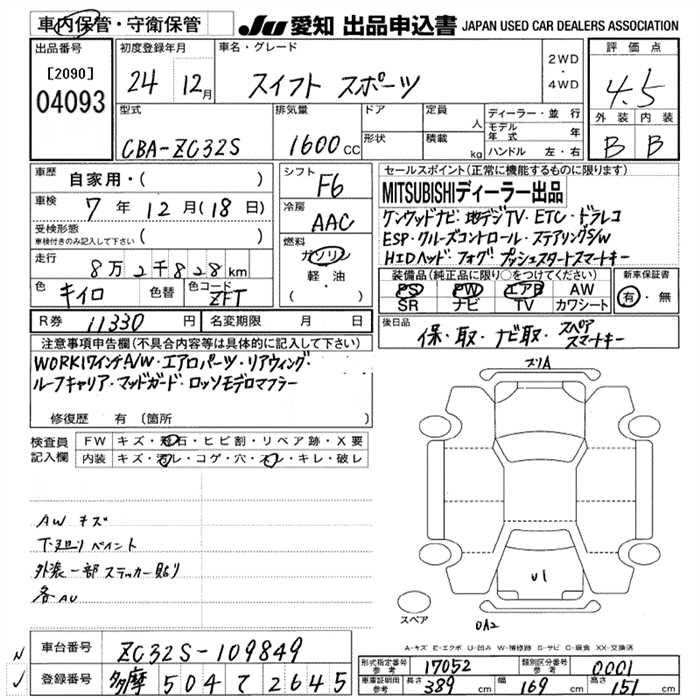 車内保管・守衛保管
JU 愛知 出品申込書 JAPAN USED CAR DEALERS ASSOCIATION
出品番号
[2090]
04093
初度登録年月
24 12月
車名・グレード
スイフト スポーツ
2WD
・
4WD
評価点
4.5
外装 内装
B B
型式
CBA-ZC32S
排気量
1600cc
ドア
形状
定員 人
積載 kg
ディーラー・並行
モデル年式 年
ハンドル 左・右
車歴 自家用・( )
車検 7年12月(18日)
受検形態
車検付きのみ記入して下さい ( )
走行 8万2千828km
色 キイロ 色替 色コード ZFT
シフト F6
冷房 AAC
燃料 ガソリン
軽・油
( )
セールスポイント(正常に機能するものに限ります)
MITSUBISHIディーラー出品
ケンウッドナビ・地デジTV・ETC・ドラレコ
ESP・クルーズコントロール・ステアリングS/W
HIDヘッド・フォグ プッシュスタートスマートキー
装備品(純正品に限り○をつけてください)
PS PW エアB AW
SR ナビ TV カワシート
新車保証書
有・無
R券 11330円 名変期限 月 日
後日品 保・取・ナビ取・スペアスマートキー
注意事項申告欄(不具合内容等は具体的に記入して下さい)
WORK17インチA/W・エアロパーツ・リアウィング・
ルーフキャリア・マッドガード・ロッソモデロマフラー
修復歴 有(箇所 )
検査員記入欄
FW キズ・飛石・ヒビ割・リペア跡・X要
内装 キズ・汚レ・コゲ・穴・スレ・キレ・破レ
AW キズ
下廻り ペイント
外装一部ステッカー貼り
各AU
スリA
U1
スペア
OA2
A-キズ E-エクボ U-凹み W-補修跡 S-サビ C-腐食 XX-交換済
N 車台番号 ZC32S-109849
✓ 登録番号 多摩 504 て 2645
形式指定番号 参考 17052 類別区分番号 参考 0001
車庫証明用 参考 長さ 389cm 幅 169cm 高さ 151cm